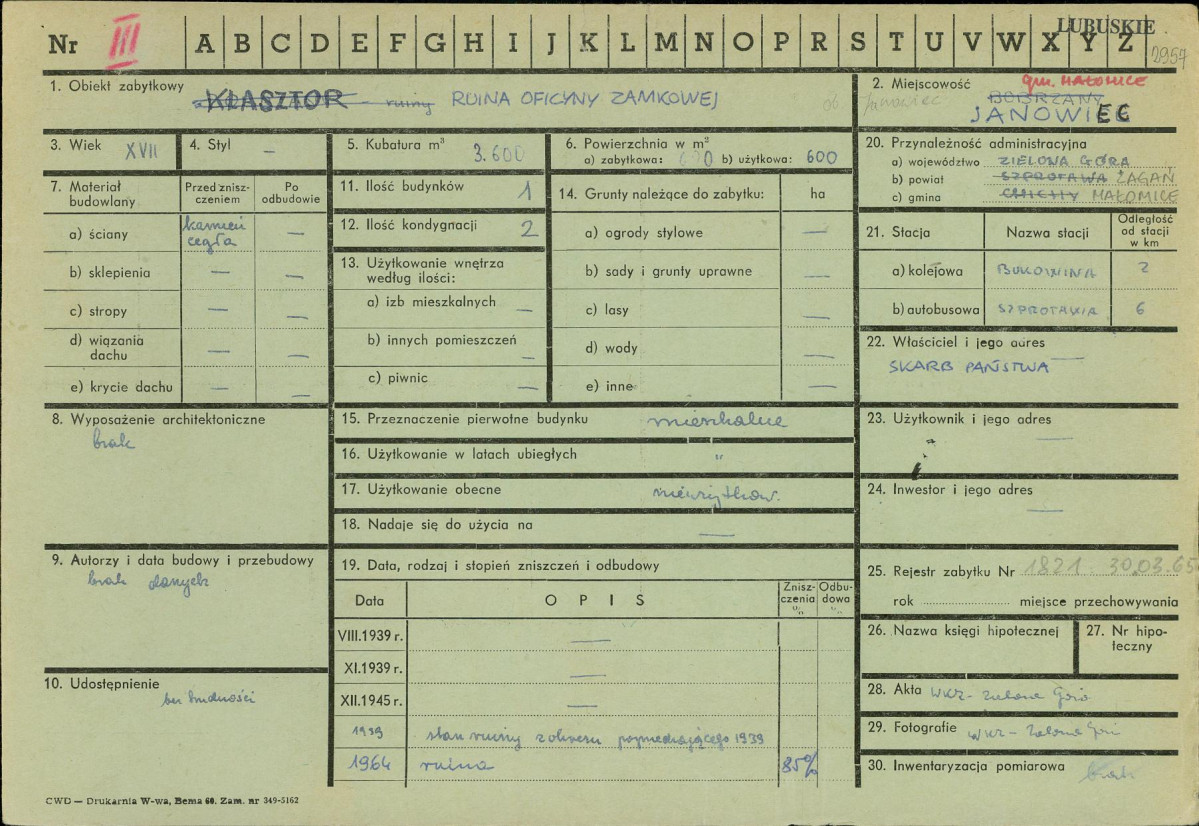 LUBUSKIE
Nr III A B C D E F G H I J K L M N O P R S T U V W X Y Z
2957
1. Obiekt zabytkowy
KLASZTOR - ruiny RUINA OFICYNY ZAMKOWEJ
ob. Janowiec
2. Miejscowość gm. MAŁOMICE
BOBRZANY
JANOWIEC
3. Wiek XVII
4. Styl —
5. Kubatura m³ 3.600
6. Powierzchnia w m²
a) zabytkowa: b) użytkowa: 600
20. Przynależność administracyjna
a) województwo ZIELONA GÓRA
b) powiat SZPROTAWA ŻAGAŃ
c) gmina CHICHY MAŁOMICE
7. Materiał budowlany
Przed znisz-
czeniem
Po
odbudowie
a) ściany kamień —
cegła
b) sklepienia — —
c) stropy — —
d) wiązania
dachu — —
e) krycie dachu — —
11. Ilość budynków 1
12. Ilość kondygnacji 2
13. Użytkowanie wnętrza
według ilości:
a) izb mieszkalnych —
b) innych pomieszczeń —
c) piwnic —
14. Grunty należące do zabytku: ha
a) ogrody stylowe —
b) sady i grunty uprawne —
c) lasy —
d) wody —
e) inne —
21. Stacja Nazwa stacji Odległość
od stacji
w km
a) kolejowa BUKOWINA 2
b) autobusowa SZPROTAWA 6
22. Właściciel i jego adres —
SKARB PAŃSTWA
8. Wyposażenie architektoniczne
brak
15. Przeznaczenie pierwotne budynku mieszkalne
16. Użytkowanie w latach ubiegłych "
17. Użytkowanie obecne nieużytkow.
18. Nadaje się do użycia na —
23. Użytkownik i jego adres
—
24. Inwestor i jego adres
—
9. Autorzy i data budowy i przebudowy
brak danych
10. Udostępnienie
bez trudności
19. Data, rodzaj i stopień zniszczeń i odbudowy
Data OPIS Znisz-
czenia
% Odbu-
dowa
%
VIII.1939 r. —
XI.1939 r. —
XII.1945 r. —
1939 stan ruiny z okresu poprzedzającego 1939
1964 ruina 85%
25. Rejestr zabytku Nr 1821 30.03.65
rok miejsce przechowywania
26. Nazwa księgi hipotecznej
27. Nr hipo-
teczny
28. Akta WKZ - Zielona Góra
29. Fotografie WKZ - Zielona Góra
30. Inwentaryzacja pomiarowa brak
CWD — Drukarnia W-wa, Bema 60. Zam. nr 349-5162